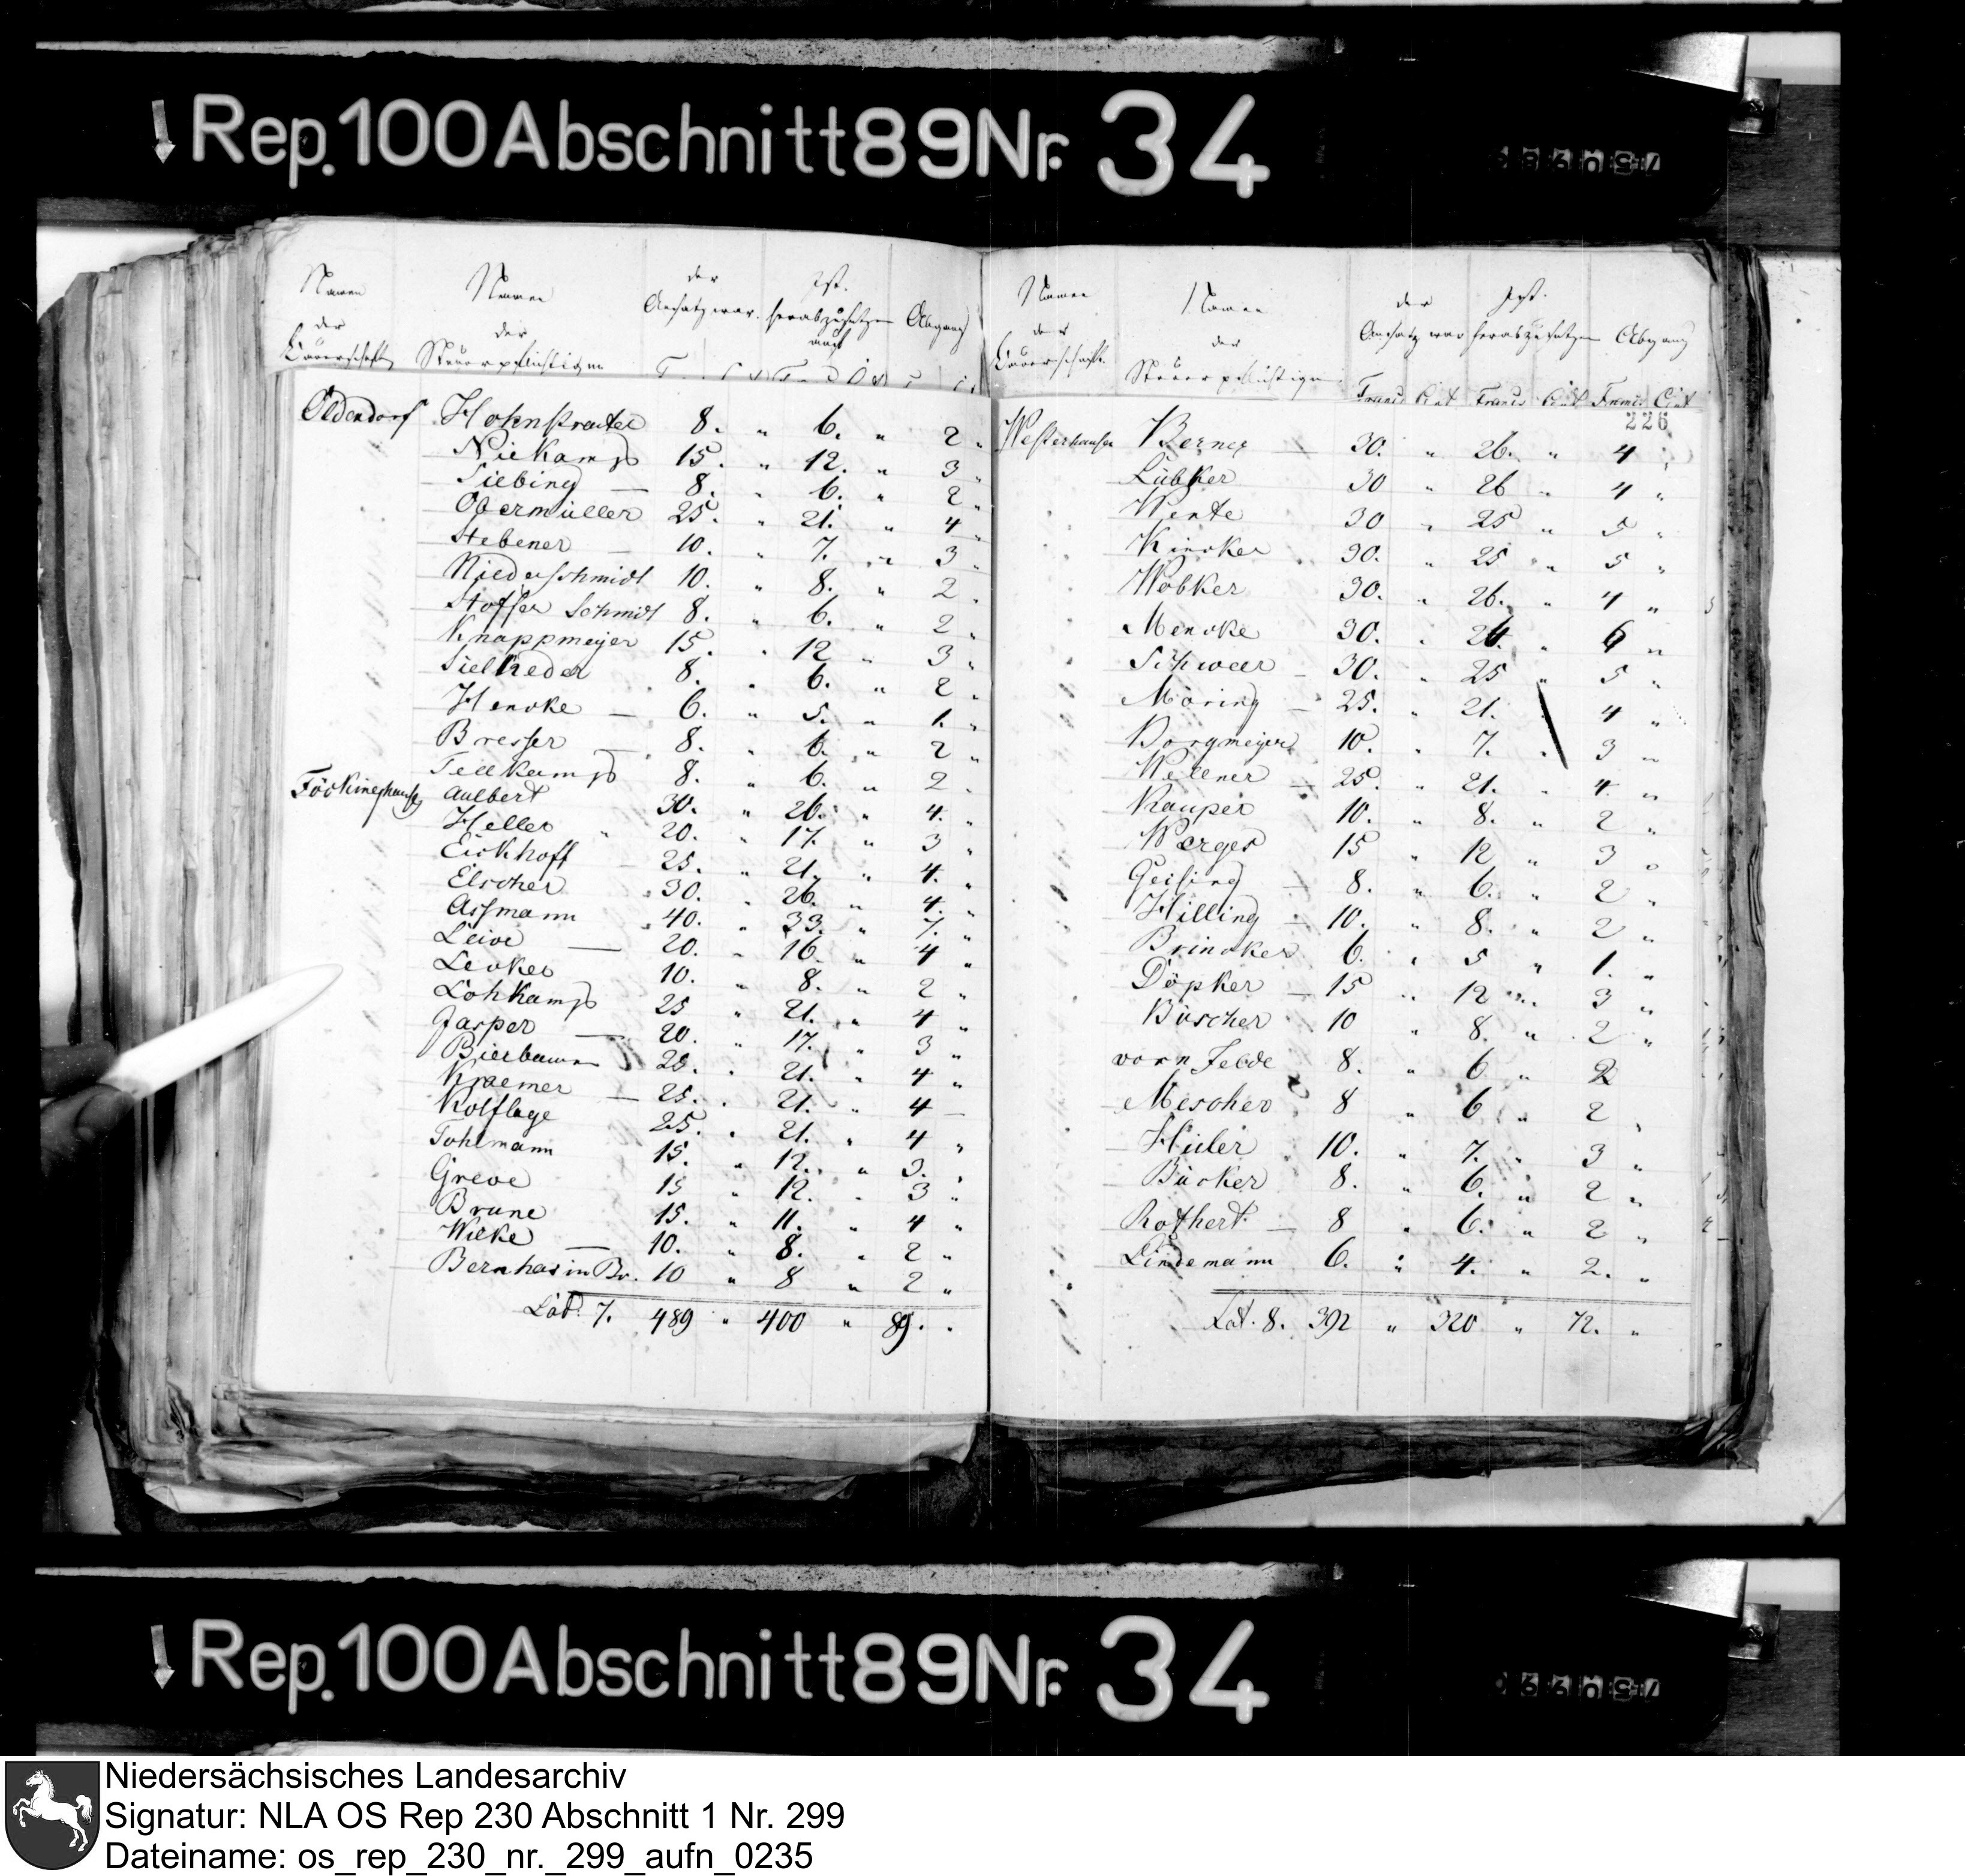 Rep. 100 Abschnitt 89 Nr. 34
Namen der Bauerschaft Namen der Steuerpflichtigen der Ansatz war. Ist herabzusetzen auf Abgang
Oldendorf Hohnstraeter 8. " 6. " 2 "
Niekamp 15. " 12. " 3 "
Siebing — 8. " 6. " 2 "
Obermüller 25. " 21. " 4 "
Stebener — 10. " 7. " 3 "
Niederschmidt 10. " 8. " 2 "
Stoffer Schmidt 8. " 6. " 2 "
Knappmeyer 15. " 12 " 3 "
8. " 6. " 2 "
Hencke — 6. " 5. " 1. "
Bresser — 8. " 6. " 2 "
Tellkamp 8. " 6. " 2 "
Föckinghausen Aulbert 30. " 26. " 4. "
Heller " 20. " 17. " 3 "
Eickhoff — 25. " 21. " 4. "
Elscher 30. " 26. " 4. "
Assmann 40. " 33. " 7. "
— 20. " 16. " 4 "
10. " 8. " 2 "
Lohkamp 25 " 21. " 4 "
Jasper — 20. " 17. " 3 "
Bierbaum 25. " 21. " 4 "
Kraemer — 25. " 21. " 4 —
Kolflage 25. " 21. " 4 "
15. " 12. " 3. "
Greve 15 " 12. " 3 "
Brune 15. " 11. " 4 "
Wilke — 10. " 8. " 2 "
10 " 8 " 2 "
Lat. 7. 489 " 400 " 89. "
Namen der Bauerschaft Namen der Steuerpflichtigen der Ansatz war Ist herabzusetzen Abgang
Francs Cent Francs Cent Francs Cent
226
Westerhausen 30. " 26. " 4 "
Lübker 30 " 26 " 4 "
Wente 30 " 25 " 5 "
Kincker 30. " 25 " 5 "
Wöbker 30. " 26. " 4 "
Mencke 30. " 24. " 6 "
Schweer — 30. " 25 " 5 "
Möring — 25. " 21. " 4 "
Borgmeyer 10. " 7. " 3 "
Wellner — 25. " 21. " 4. "
Kauper 10. " 8. " 2 "
Werges 15 " 12 " 3 "
Geising — 8. " 6. " 2 "
Hilling — 10. " 8. " 2 "
Brincker 6. " 5 " 1. "
Döpker — 15 " 12 " 3 "
Büscher 10 " 8. " 2 "
vorn Felde 8. " 6. " 2
Mescher 8 " 6 " 2 "
10. " 7. " 3 "
Bücker 8. " 6. " 2 "
Rothert — 8 " 6. " 2 "
Lindemann 6. " 4. " 2. "
Lat. 8. 392 " 320 " 72. "
Rep. 100 Abschnitt 89 Nr. 34
Niedersächsisches Landesarchiv
Signatur: NLA OS Rep 230 Abschnitt 1 Nr. 299
Dateiname: os_rep_230_nr._299_aufn_0235